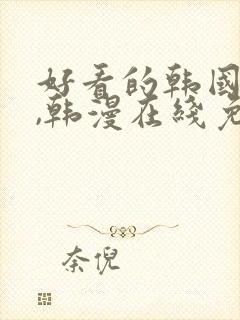 好看的韩国
,韩漫在线免
奈倪